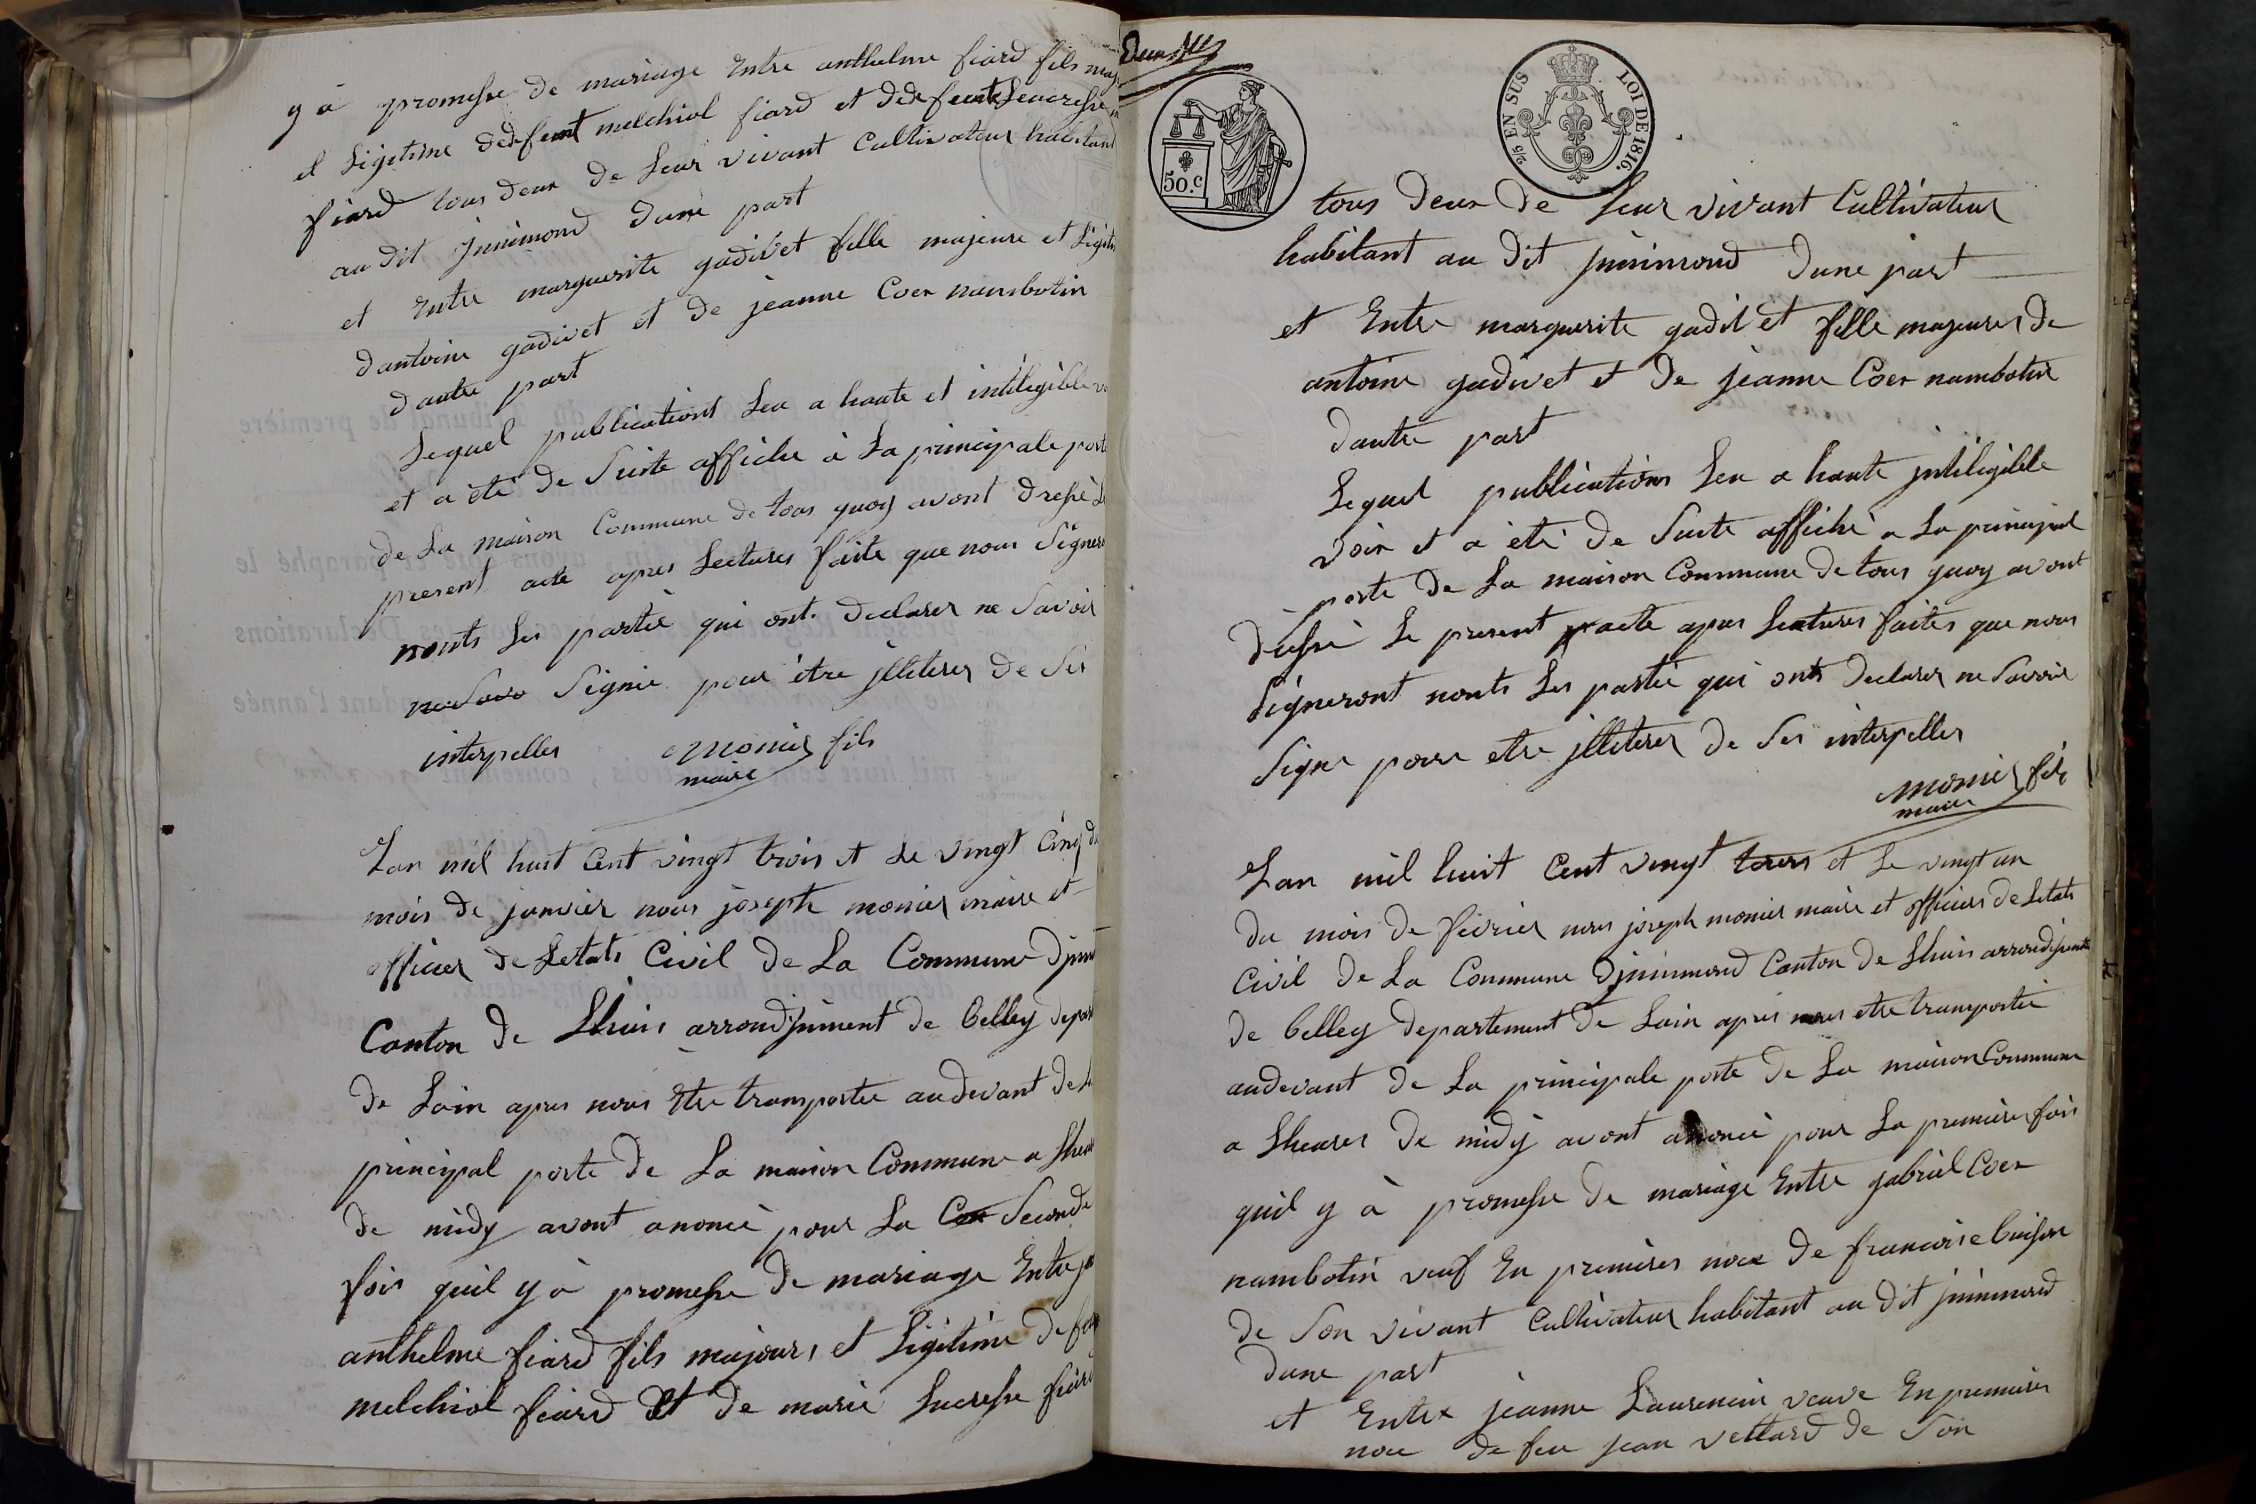 y à promesse de mariage Entre anthelme fiard fils maj
et Ligetime def feut melchiol fiard et def feut Leucresse
fiard tous deux de Leur vivant Cultivateur habitant
au dit jnnimond dune part
et Entre marguerite gadivet fille majeure et Ligiti
dantoine gadivet et de jeanne Coer nambotin
dautre part
Lequel publicationt Leu a haute et intilegible
et a été de Suite affiche à La principale porte
de La maison Commune de tous quoy avont dressé Le
present acte apres Lectures faite que nous Signere
nonts Les partie qui ont declarer ne Savoir
ne Savo Signie pour être jlleterer de Ses
interpeller monier fils
maire
Lan mil huit Cent vingt trois et Le vingt Cinq du
mois de janvier nous joseph monier maire et
officier de Letats Civil de La Commune Djnni
Canton de Lhuis arrondjsiment de belley depart
de Lain apres nous Etre transporter audevant de La
principal porte de La maison Commune a Lheur
de midy avont anoncé pour La Seconde
fois quil y à promesse de mariage Entre
anthelme fiard fils majeurs et Ligitime de feu
melchiol fiard Et de marie Lucresse fiard
50.c
2/5 EN SUS LOI DE 1816.
tous deux de Leur vivant Cultivateur
habitant au dit jnnimond dune part
et Entre marguerite gadivet fille majeures de
antoine gadivet et de jeanne Coer nambotin
dautre part
Lequel publications Leu a haute jntiligible
voix et a été de Suite affiché a La principal
porte de La maison Commune de tous quoy avont
dressé Le present acte apres Lectures faites que nous
Signeront nonts Les partie qui onts declarer ne Savoir
Signe pour etre jlleterer de Ses interpeller
monier fils
maire
Lan mil huit Cent vingt trois et Le vingt un
du mois de fevrier nous joseph monier maire et officier de Letats
Civil de La Commune Djnnimond Canton de Lhuis arrondjsment
de belley departement de Lain apres nous etre transportée
audevant de La principale porte de La maison Commune
a Lheures de midy avont anoncé pour La premiere fois
quil y à promesse de mariage Entre gabriel Coer
nambotin veuf En premieres noce de francoise buisson
de Son vivant Cultivateur habitant au dit jnnimond
dune part
et Entre jeanne Laurencin veuve En premiere
noce de feu jean vettard de Son